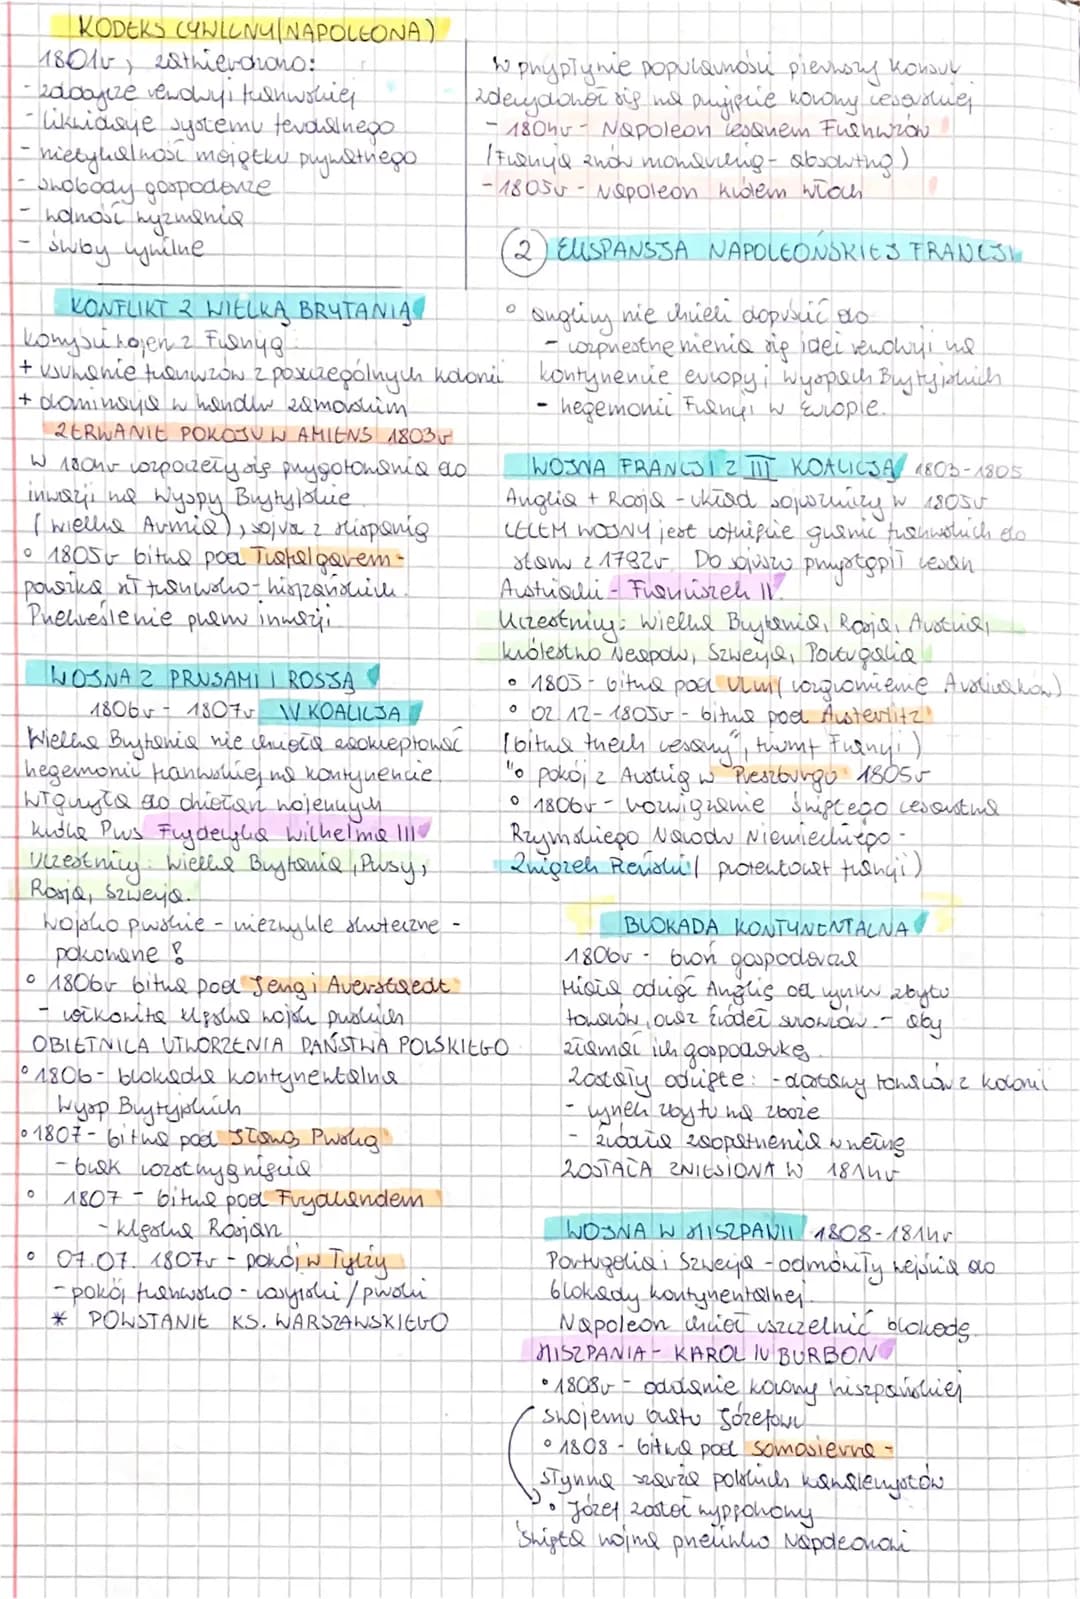 KODEKS CYWILNY (NAPOLEONA)
1801r, zatwierdzono:
- zdobycze rewolucji francuskiej
- likwidacje systemu feudalnego
- nietykalność majątku prywatnego
- swobody gospodarcze
- wolność wyznania
- śluby cywilne
KONFLIKT Z WIELKĄ BRYTANIĄ
Korzyści wojen z Francją:
+ usuwanie francuzów z poszczególnych kolonii
+ dominacja w handlu zamorskim
ZERWANIE POKOJU W AMIENS 1803r
W 1804r rozpoczęły się przygotowania do
inwazji na Wyspy Brytyjskie
(Wielka Armia), sojusz z Hiszpanią
• 1805r bitwa pod Trafalgarem -
porażka fl francusko-hiszpańskiej.
Przekreślenie planu inwazji
WOJNA Z PRUSAMI I ROSJĄ
1806r - 1807r IV KOALICJA
Wielka Brytania nie chciała zaakceptować
hegemonii francuskiej na kontynencie
włączyła do działań wojennych
króla Prus Fryderyka Wilhelma III
Uczestnicy: Wielka Brytania, Prusy,
Rosja, Szwecja.
Wojsko pruskie - niezwykle skuteczne -
pokonane!
• 1806r bitwa pod Jeną i Auerstaedt
- całkowita klęska wojsk pruskich
OBIETNICA UTWORZENIA PAŃSTWA POLSKIEGO
• 1806 - blokada kontynentalna
Wysp Brytyjskich
• 1807 - bitwa pod Iławą Pruską
- brak rozstrzygnięcia
• 1807 - bitwa pod Frydlandem
- klęska Rosjan
• 07.07.1807r - pokój w Tylży
- pokój francusko-rosyjski/pruski
* POWSTANIE KS. WARSZAWSKIEGO
W przypływie popularności pierwszy konsul
zdecydował się na przyjęcie korony cesarskiej
- 1804r - Napoleon cesarzem Francuzów
(Francja znów monarchią - absolutną)
- 1805r - Napoleon królem Włoch
2 EKSPANSJA NAPOLEOŃSKIEJ FRANCJI
• anglicy nie chcieli dopuścić do
- rozprzestrzenienia się idei rewolucji na
kontynencie europy i wyspach Brytyjskich
- hegemonii Francji w Europie.
WOJNA FRANCJI Z III KOALICJĄ 1803-1805
Anglia + Rosja - układ sojuszniczy w 1805r
CELEM WOJNY jest cofnięcie granic francuskich do
stanu z 1792r. Do sojuszu przystąpił cesarz
Austriacki - Franciszek II.
Uczestnicy: Wielka Brytania, Rosja, Austria,
królestwo Neapolu, Szwecja, Portugalia
• 1805 - bitwa pod Ulm (rozgromienie Austriaków)
• 02.12-1805r - bitwa pod Austerlitz
(bitwa trzech cesarzy", triumf Francji)
"• pokój z Austrią w Preszburgu 1805r
• 1806r - rozwiązanie Świętego Cesarstwa
Rzymskiego Narodu Niemieckiego -
Związek Reński (protektorat francji)
BLOKADA KONTYNENTALNA
1806r - broń gospodarcza
Miała odciąć Anglię od rynku zbytu
towarów, oraz źródeł surowców - aby
złamać ich gospodarkę.
Zostały odcięte: - dostawy towarów z kolonii
- rynek zbytu na zboże
- źródła zaopatrzenia w wełnę
ZOSTAŁA ZNIESIONA W 1814r
WOJNA W HISZPANII 1808-1814r
Portugalia i Szwecja - odmówiły wejścia do
blokady kontynentalnej.
Napoleon chciał uszczelnić blokadę.
HISZPANIA - KAROL IV BURBON
• 1808r - oddanie korony hiszpańskiej
swojemu bratu Józefowi
• 1808 - bitwa pod Somosierrą -
słynna szarża polskich kawalerzystów
• Józef został wypędzony
Święta wojna przeciwko Napoleonowi